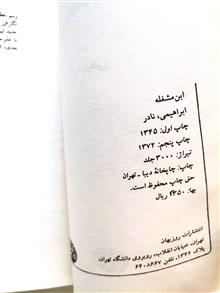 ابن مشغله
ابراهیمی، نادر
چاپ اول: ۱۳۴۵
چاپ پنجم: ۱۳۷۲
تیراژ: ۳۰۰۰ جلد
چاپ: چاپخانهٔ دیبا - تهران
حق چاپ محفوظ است.
بها: ۲۳۵۰ ریال
انتشارات روزبهان
تهران، خیابان انقلاب، روبروی دانشگاه تهران،
پلاک ۱۳۴۲، تلفن ۶۴۰۸۶۶۷